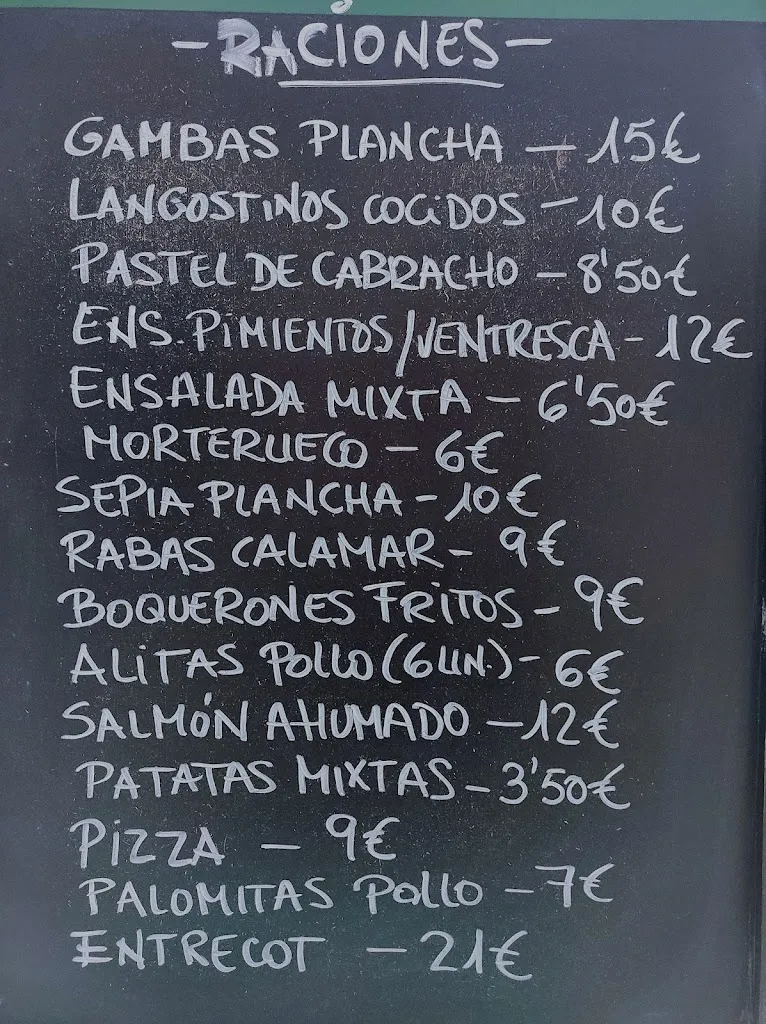 - RACIONES -
GAMBAS PLANCHA - 15€
LANGOSTINOS COCIDOS - 10€
PASTEL DE CABRACHO - 8'50€
ENS. PIMIENTOS/VENTRESCA - 12€
ENSALADA MIXTA - 6'50€
MORTERUECO - 6€
SEPIA PLANCHA - 10€
RABAS CALAMAR - 9€
BOQUERONES FRITOS - 9€
ALITAS POLLO (6 UN.) - 6€
SALMÓN AHUMADO - 12€
PATATAS MIXTAS - 3'50€
PIZZA - 9€
PALOMITAS POLLO - 7€
ENTRECOT - 21€